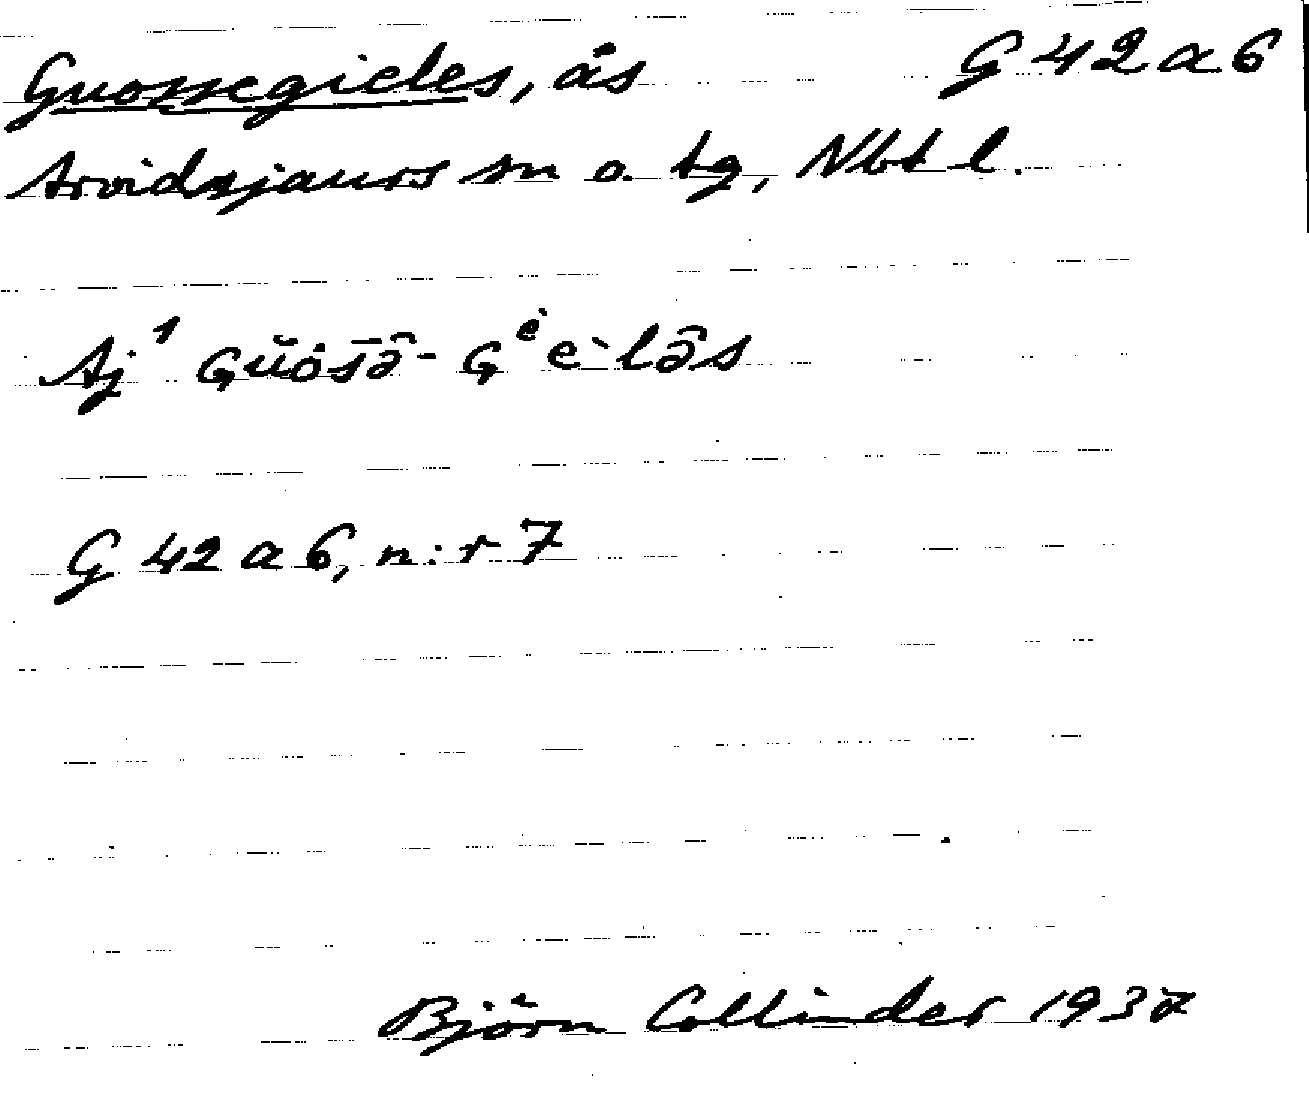 Guossegieles, ås G 42 a 6
Arvidsjaurs sn o. tg, Nbt l.
Aj¹ Gŭȯs̄ə̑- Gᵉ̀e`lə̑s
G 42 a 6, n:r 7
Björn Collinder 1937